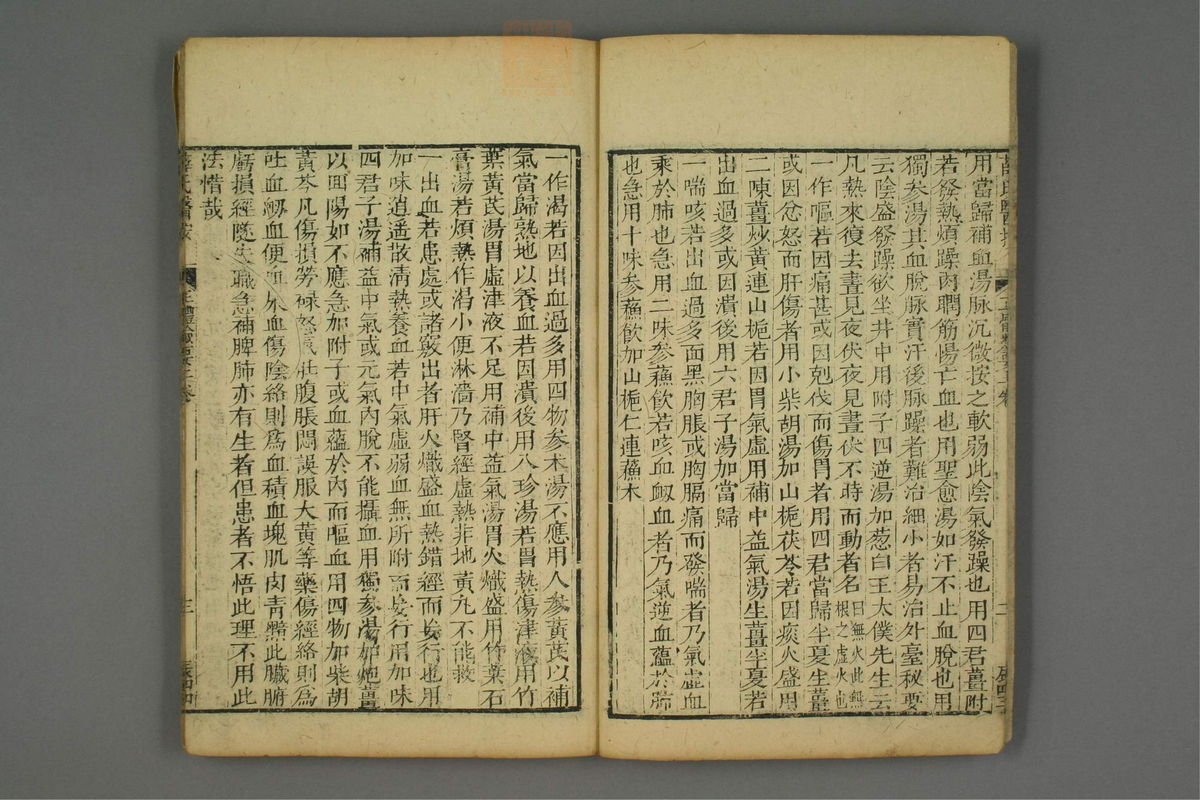 用當歸補血湯脉沉微按之軟弱此陰氣發躁也用四君薑附
若發熱煩躁肉瞤筋惕亡血也用聖愈湯如汗不止血脫也用
獨參湯其血脫脉實汗後脉躁者難治細小者易治外臺秘要
云陰盛發躁欲坐井中用附子四逆湯加葱白王太僕先生云
凡熱來復去晝見夜伏夜見晝伏不時而動者名曰無火此無根之虛火也
一作嘔若因痛甚或因剋伐而傷胃者用四君當歸半夏生薑
或因忿怒而肝傷者用小柴胡湯加山梔茯苓若因痰火盛用
二陳薑炒黃連山梔若因胃氣虛用補中益氣湯生薑半夏若
出血過多或因潰後用六君子湯加當歸
一喘咳若出血過多面黑胸脹或胸膈痛而發喘者乃氣虛血
乘於肺也急用二味參蘇飲若咳血衂血者乃氣逆血蘊於肺
也急用十味參蘇飲加山梔仁連蘇木
一作渴若因出血過多用四物參朮湯不應用人參黃芪以補
氣當歸熟地以養血若因潰後用八珍湯若胃熱傷津液用竹
葉黃芪湯胃虛津液不足用補中益氣湯胃火熾盛用竹葉石
膏湯若煩熱作渴小便淋濇乃腎經虛熱非地黃丸不能救
一出血若患處或諸竅出者肝火熾盛血熱錯經而妄行也用
加味逍遥散清熱養血若中氣虛弱血無所附而妄行用加味
四君子湯補益中氣或元氣內脫不能攝血用獨參湯加炮薑
以囬陽如不應急加附子或血蘊於內而嘔血用四物加柴胡
黃芩凡傷損勞碌怒氣肚腹脹悶誤服大黃等藥傷經絡則爲
吐血衂血便血尿血傷陰絡則爲血積血塊肌肉青黯此臟腑
虧損經隧失職急補脾肺亦有生者但患者不悟此理不用此
法惜哉
薛氏醫按
三